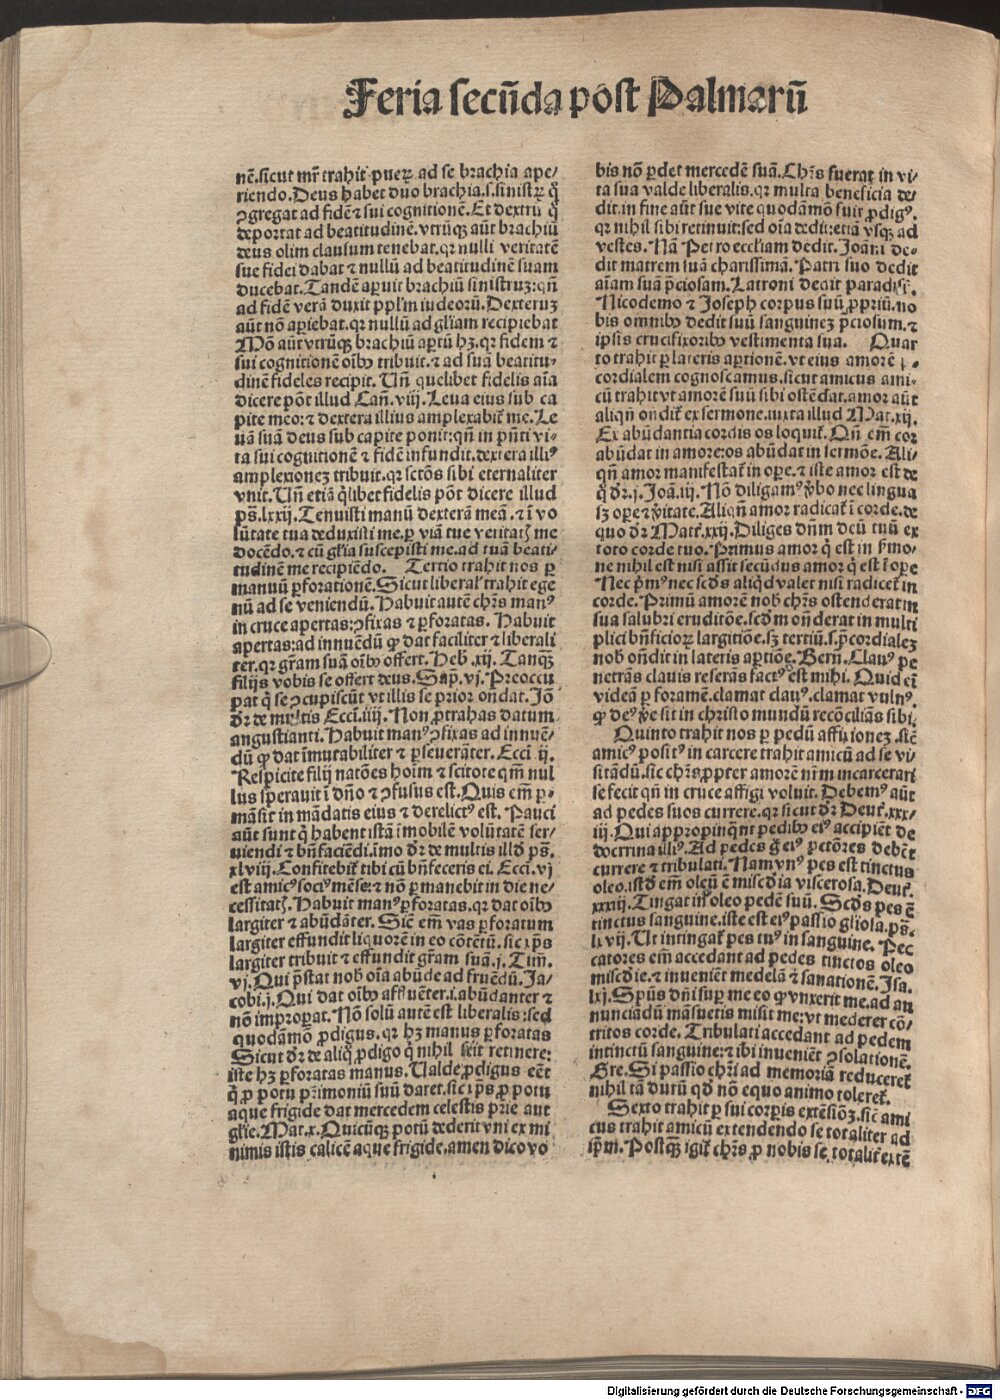 Feria secũda post Palmarũ
nẽ.sicut mr̃ trahit pueꝝ ad se brachia ape/
riendo.Deus habet duo brachia.s.sinistꝝ q̊
ꝯgregat ad fidẽ ⁊ sui cognitionẽ.Et dextrũ q̊
deportat ad beatitudinẽ.vtrũqꝫ aũt brachiũ
deus olim clausum tenebat.qꝛ nulli veritatẽ
sue fidei dabat ⁊ nullũ ad beatitudinẽ suam
ducebat.Tandẽ aꝑuit brachiũ sinistruꝫ:qñ
ad fidẽ verã duxit ppl̃m iudeorũ.Dexteruꝫ
aũt nõ aꝑiebat.qꝛ nullũ ad gl̃iam recipiebat
Mõ aũt vtrũqꝫ brachiũ aꝑtũ hꝫ.qꝛ fidem ⁊
sui cognitionẽ oĩbꝰ tribuit.⁊ ad suã beatitu-
dinẽ fideles recipit.Uñ quelibet fidelis aĩa
dicere põt illud Cañ.viij.Leua eius sub ca
pite meo:⁊ dextera illius amplexabit᷑ me.Le
uã suã deus sub capite ponit:qñ in pñti vi-
ta sui cognitionẽ ⁊ fidẽ infundit.dextera illiꝰ
amplexioneꝫ tribuit.qꝛ sctõs sibi eternaliter
vnit.Uñ etiã q̃libet fidelis põt dicere illud
ps̃.lxxij.Tenuisti manũ dexterã meã.⁊ ĩ vo
lũtate tua deduxisti me.ꝑ viã tue veritatꝭ me
docẽdo.⁊ cũ gl̃ia suscepisti me.ad tuã beati-
tudinẽ me recipiẽdo. Tertio trahit nos ꝑ
manuũ ꝑforationẽ.Sicut liberal᷑ trahit ege
nũ ad se veniendũ.Habuit autẽ chr̃s manꝰ
in cruce apertas:ꝯfixas ⁊ ꝑforatas. Habuit
apertas:ad innuẽdũ ꝙ dat faciliter ⁊ liberali
ter.qꝛ gr̃am suã oĩbꝰ offert.Heb.xij. Tanqꝫ
filijs vobis se offert deus.Sap.vj.Preoccu
pat q̊ se ꝯcupiscũt vt illis se prior oñdat.Jõ
dr̃ de multis Ecci.iiij.Non ꝓtrahas datum
angustianti.Habuit manꝰ ꝯfixas ad innuẽ/
dũ ꝙ dat ĩmutabiliter ⁊ ꝑseuerãter.Ecci ij.
Respicite filij natões hoĩm ⁊ scitote qm̃ nul
lus sperauit ĩ dño ⁊ ꝯfusus est.Quis em̃ ꝑ-
mãsit in mãdatis eius ⁊ derelictꝰ est. Pauci
aũt sunt q̊ habent istã ĩmobilẽ volũtatẽ ser/
uiendi ⁊ bñfaciẽdi.ĩmo dr̃ de multis illd̃ ps̃.
xlviij.Confitebit᷑ tibi cũ bñfeceris ei.Ecci.vj
est amicꝰ sociꝰ mẽse:⁊ nõ ꝑmanebit in die ne/
cessitatꝭ.Habuit manꝰ ꝑforatas.qꝛ dat oĩbꝰ
largiter ⁊ abũdãter. Sicẽ em̃ vas ꝑforatum
largiter effundit liquorẽ in eo cõtẽtũ.sic xp̃s
largiter tribuit ⁊ effundit gr̃am suã.j. Tim̃.
vj.Qui p̃stat nob̃ oĩa abũde ad fruẽdũ. Ja/
cobi.j.Qui dat oĩbꝰ affluẽter.i.abũdanter ⁊
nõ imꝓperat. Nõ solũ autẽ est liberalis:sed
quodãmõ ꝓdigus.qꝛ hꝫ manus ꝑforatas
Sicut dr̃ de aliq̊ ꝓdigo q̊ nihil scit retinere:
iste hꝫ ꝑforatas manus.Ualde ꝓdigus eẽt
q̊ ꝓ potu p̃rimoniũ suũ daret.sic xp̃s ꝓ potu
aque frigide dat mercedem celestis pr̃ie aut
gl̃ie.Mat.x.Quicũqꝫ potũ dederit vni ex mi
nimis istis calicẽ aque frigide.amen dico vo
bis nõ ꝑdet mercedẽ suã.Chr̃s fuerat in vi/
ta sua valde liberalis.qꝛ multa beneficia de/
dit.in fine aũt sue vite quodãmõ fuit ꝓdigꝰ.
qꝛ nihil sibi retinuit:sed oĩa dedit:etiã vsqꝫ ad
vestes. Nã Petro eccl̃iam dedit.Joãni de-
dit matrem suã charissimã.Patri suo dedit
aĩam suã p̃ciosam.Latroni dedit paradis̃.
Nicodemo ⁊ Joseph corpus suũ ꝓpriũ.no
bis omnibꝰ dedit suũ sanguineꝫ p̃ciosum.⁊
ipsis crucifixoribꝰ vestimenta sua. Quar
to trahit ꝑ lateris aꝑtionẽ.vt eius amorẽ
cordialem cognoscamus.sicut amicus ami-
cũ trahit vt amorẽ suũ sibi ostẽdat.amor aũt
aliqñ oñdit᷑ ex sermone.iuxta illud Mat.xij.
Ex abũdantia cordis os loquit᷑.Qñ em̃ cor
abũdat in amore:os abũdat in sermõe. Ali-
qñ amor manifestat᷑ in oꝑe.⁊ iste amor est de
q̊ dr̃.j.Joã.iij. Nõ diligamꝰ ṽbo nec lingua
sꝫ oꝑe ⁊ ṽitate.Aliqñ amor radicat᷑ ĩ corde.de
quo dr̃ Matt̃.xxij.Diliges dñm deũ tuũ ex
toto corde tuo.Primus amor q̊ est in ẜmo-
ne nihil est nisi assit secũdus amor q̊ est ĩ oꝑe
Nec p̃mꝰ nec scd̃s aliqd̃ valet nisi radicet᷑ in
corde.Primũ amorẽ nob̃ chr̃s ostenderat in
sua salubri eruditõe.scd̃m oñderat in multi
plici bñficioꝝ largitiõe.sꝫ tertiũ.s.p̃cordialeꝫ
nob̃ oñdit in lateris aꝑtiõe.Berñ.Clauꝰ pe
netrãs clauis reserãs factꝰ est mihi. Quid eĩ
videã ꝑ foramẽ.clamat clauꝰ.clamat vulnꝰ.
ꝙ deꝰ ṽe sit in christo mundũ recõciliãs sibi.
Quinto trahit nos ꝑ pedũ affixioneꝫ.sicẽ
amicꝰ positꝰ in carcere trahit amicũ ad se vi
sitãdũ.sic chr̃s ꝓpter amorẽ nr̃m incarcerari
se fecit qñ in cruce affigi voluit.Debemꝰ aũt
ad pedes suos currere.qꝛ sicut dr̃ Deut᷑.xxx/
iij.Qui appropinq̃nt pedibꝰ eiꝰ accipiẽt de
doctrina illiꝰ.Ad pedes g̊ eiꝰ pctõres debẽt
currere ⁊ tribulati.Nam vnꝰ pes est tinctus
oleo.istd̃ em̃ oleũ ẽ miscd̃ia viscerosa.Deut᷑.
xxxiij.Tingat in oleo pedẽ suũ. Scd̃s pes ẽ
tinctus sanguine.iste est eiꝰ passio gl̃iosa.ps̃.
lxvij.Ut intingat᷑ pes tuꝰ in sanguine. Pec
catores em̃ accedant ad pedes tinctos oleo
miscd̃ie.⁊ inueniẽt medelã ⁊ sanationẽ.Jsa.
lxj.Spũs dñi suꝑ me eo ꝙ vnxerit me.ad an
nunciadũ mãsuetis misit me:vt mederer cõ/
tritos corde. Tribulati accedant ad pedem
intinctũ sanguine:⁊ ibi inueniẽt ꝯsolationẽ.
Gre.Si passio chr̃i ad memoriã reduceret᷑
nihil tã durũ qd̃ nõ equo animo toleret᷑.
Sexto trahit ꝑ sui corꝑis extẽsiõꝫ.sicẽ ami
cus trahit amicũ extendendo se totaliter ad
ip̃m.Postqꝫ igit᷑ chr̃s ꝓ nobis se totalit᷑ extẽ
Digitalisierung gefördert durch die Deutsche Forschungsgemeinschaft - DFG